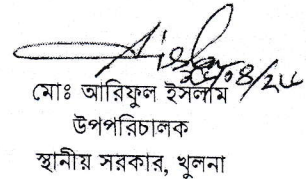 মোঃ আরিফুল ইসলাম
উপপরিচালক
স্থানীয় সরকার, খুলনা